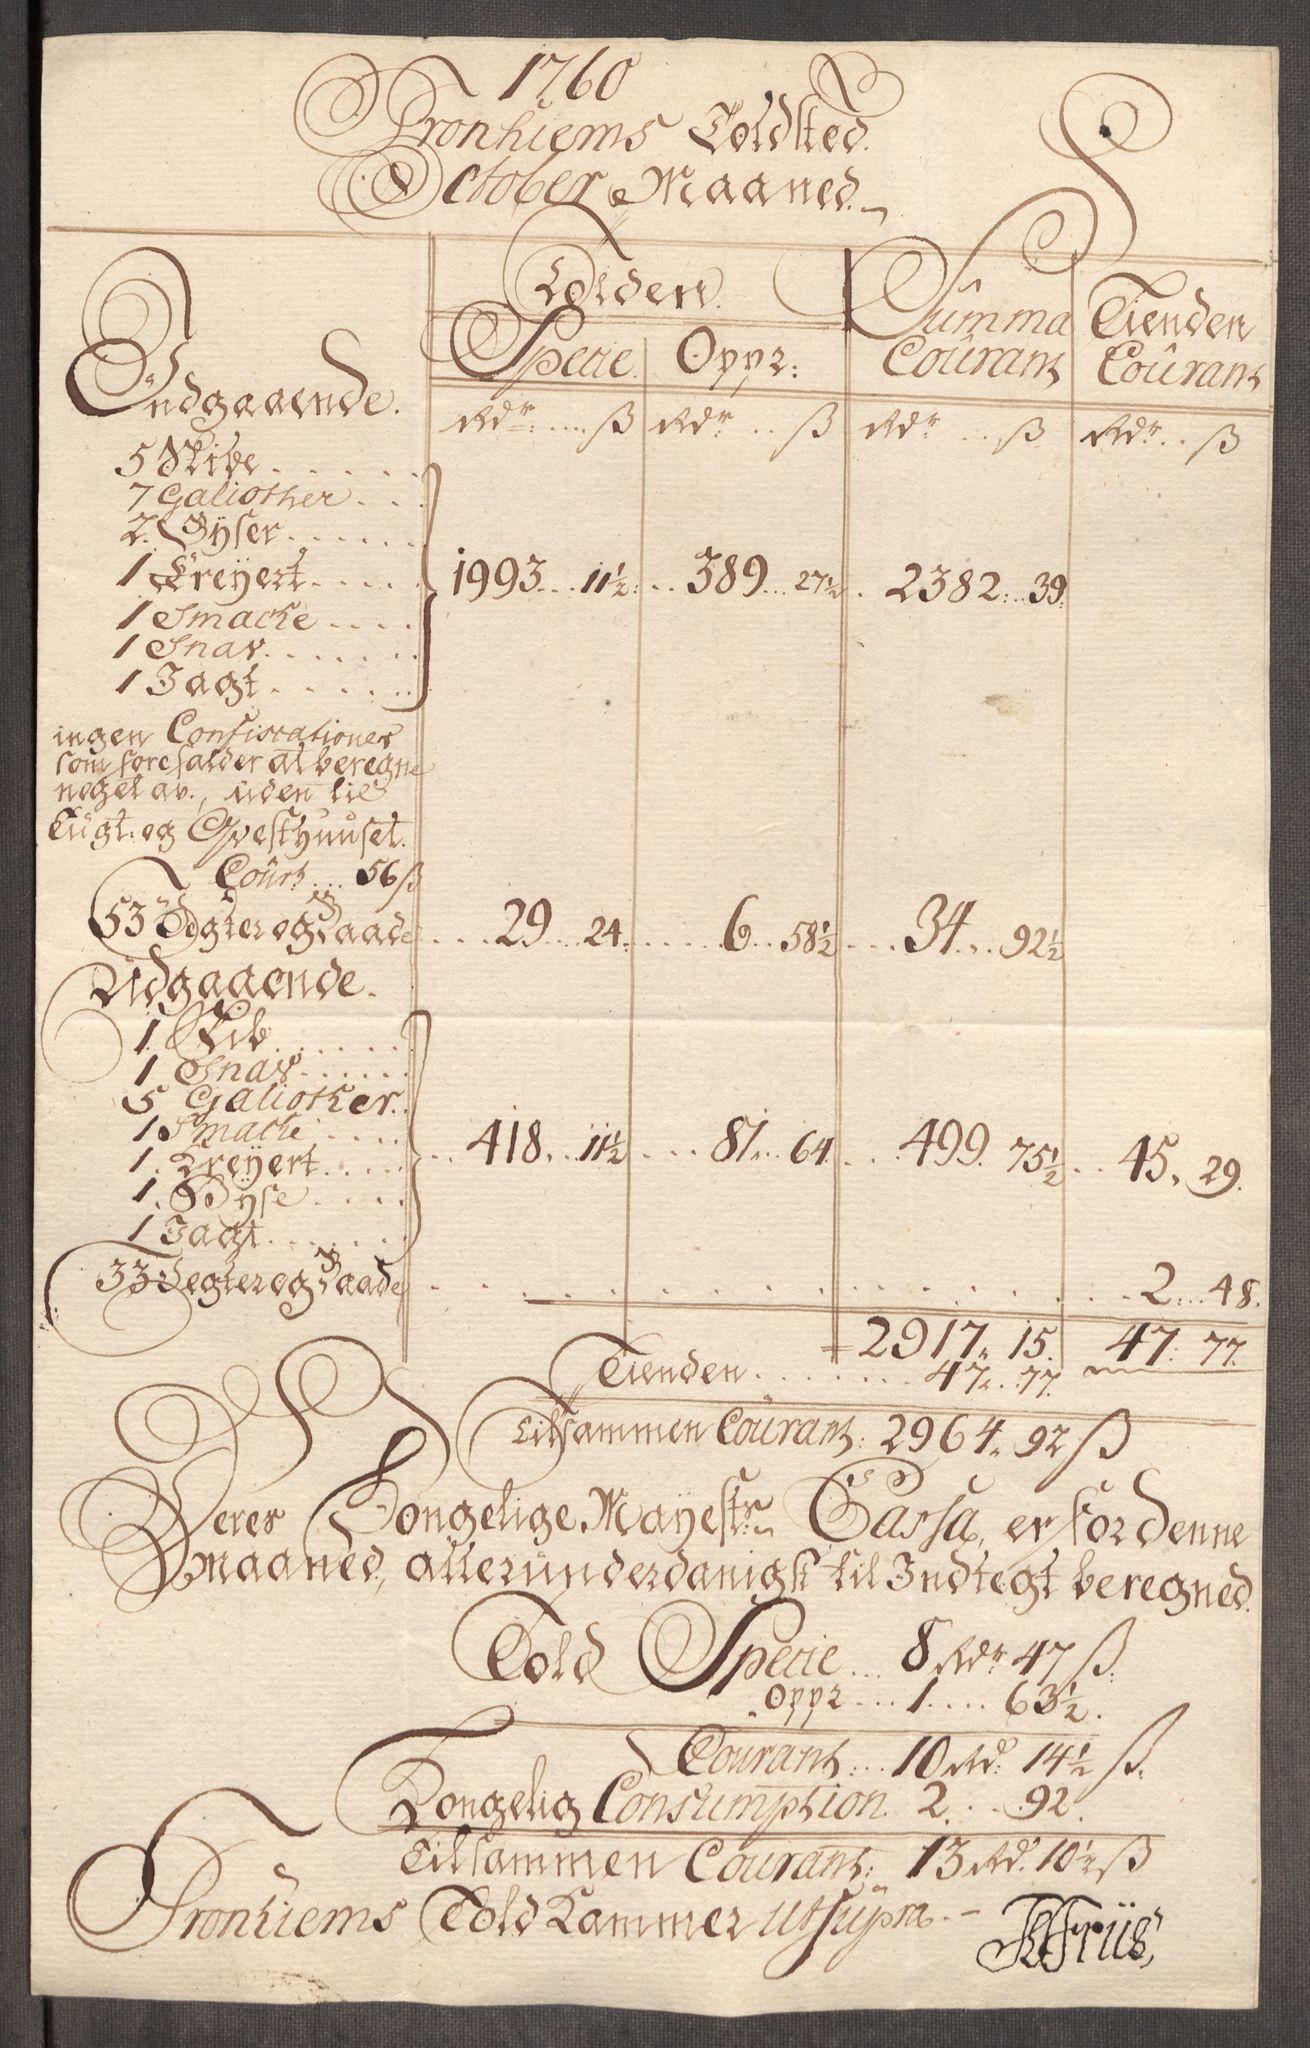 1760
Tronhiems Toldsted.
October Maaned.
Tolden.
Summa Tienden
Specie. Oppr: Courant Courant
Indgaaende.
Rdr: .... ß Rdr: .. ß Rdr .. ß Rdr. .. ß
5 Skibe . . . . .
7 Galiother . . .
2. Hyser . . . . . .
1 Kreÿert . . . . 1993 ... 11½ .. 389 ... 27½ . 2382 ... 39:
1 Smacke . . . .
1 Snav. . . . . . .
1 Jagt . . . . . .
ingen Confiscationer
som forefalder at beregne
noget av., uden til
Tugt: og Hospit huuset.
Court .... 56 ß
53 Jægter og Baade . . . 29 ... 24. . . . . . 6 .. 58½ ... 34 ... 92½
Udgaaende.
1. Skib . . . . . .
1 Snav . . . . . .
5 Galiother. .
1 Smacke . . . .
1. Kreÿert . . . . .. 418. .. 11½ ... 81 ... 64 ... 499. 75½ ... 45. 29.
1. Hyse . . . .
1 Jagt . . . . . .
33 Jegter og Baade . . . . . . . . . . . . 2 ... 48.
2917. 15. 47: 77.
Tienden . . . . . . . 47. .. 77.
tilsammen Courant: 2964. 92 ß
Deres Kongelige Mayestr: Cassa, er for denne
Maaned, allerunderdanigst til Indtegt beregned.
Told Specie ... 8 Rdr 47 ß:
Oppr ... 1 .... 63½.
Courant: ... 10 Rd: 14½ ß.
Kongelig Consumption. 2. .. 92.
Tilsammen Courant: 13 Rd: 10½ ß
Tronhiems Told Kammer ut supra. -
Friis,